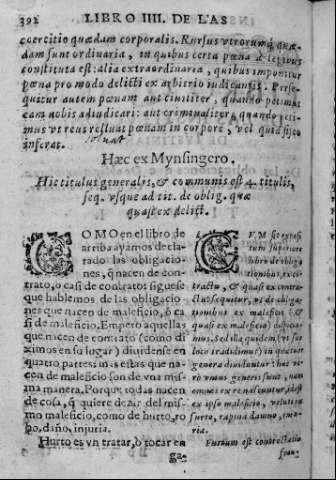 392 LIBRO IIII. DE LAS
coercitio quædam corporalis. Rursus vtrorumq, quæ-
dam sunt ordinaria, in quibus certa pœna à legibus
constituta est: alia extraordinaria, quibus imponitur
pœna pro modo delicti ex arbitrio iudicantis. Perse-
quitur autem pœnam aut ciuiliter, quando petimus
eam nobis adiudicari: aut criminaliter, quando peti-
mus vt reus resluat pœnam in corpore, vel quid fisco
inferat.
Hæc ex Mynsingero.
Hic titulus generalis, & communis est 4. titulis,
seq. vsque ad tit. de oblig. quæ
quasi ex delict.
COMO en el libro de
arriba ayamos decla-
rado las obligacio
nes, q̃ nacen de con-
trato, o casi de contratos siguese
que hablemos de las obligacio
nes que nacen de maleficio, ò ca
si de maleficio, Empero aquellas
que nacen de contrato (como di
ximos en su lugar) diuidense en
quatro partes: mas estas que na-
cen de maleficio son de vna mis-
ma manera. Porque todas nacen
de cosa, q̃ quiere dezir del mis-
mo maleficio, como de hurto, ro
bo, daño, injuria.
Hurto es vn tratar, ò tocar en
ga-
CVM sit exposi
tum superiore
libro de obliga
tionibus, ex con
tractu, & quasi ex contra-
ctu: sequitur, vt de obliga-
tionibus ex maleficio (&
quasi ex maleficio) dispicia-
mus. Sed illa quidem (vt suo
loco tradidimus) in quatuor
genera diuiduntur: hæ ve-
rò vnius generis sunt, nam
omnes ex re nascuntur, idest
ex ipso maleficio, veluti ex
furto, rapina damno, iniu-
ria.
Furtum est contrectatio
frau-